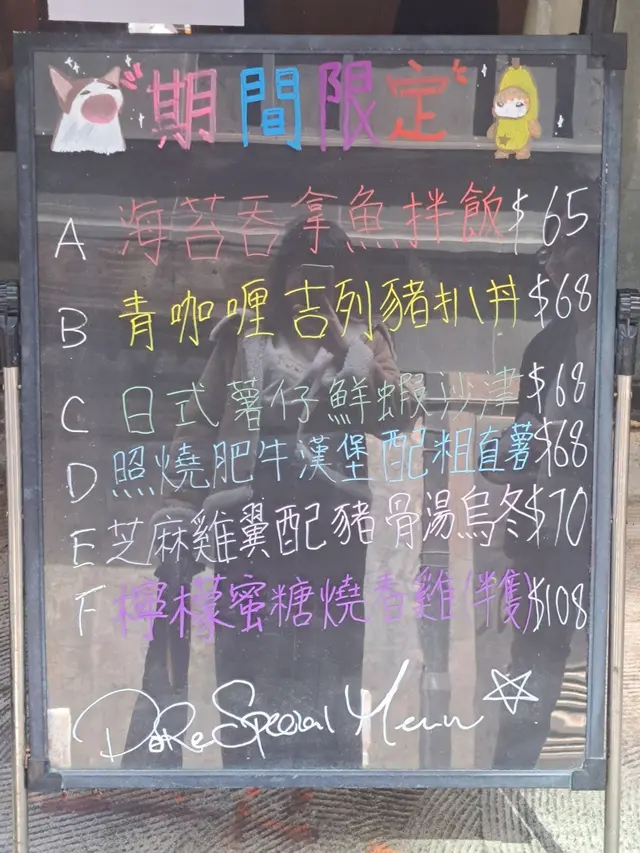 期間限定
A 海苔吞拿魚拌飯 $65
B 青咖喱吉列豬扒丼 $68
C 日式薯仔鮮蝦沙津 $68
D 照燒肥牛漢堡配粗直薯 $68
E 芝麻雞翼配豬骨湯烏冬 $70
F 檸檬蜜糖燒香雞(半隻) $108
Special Menu